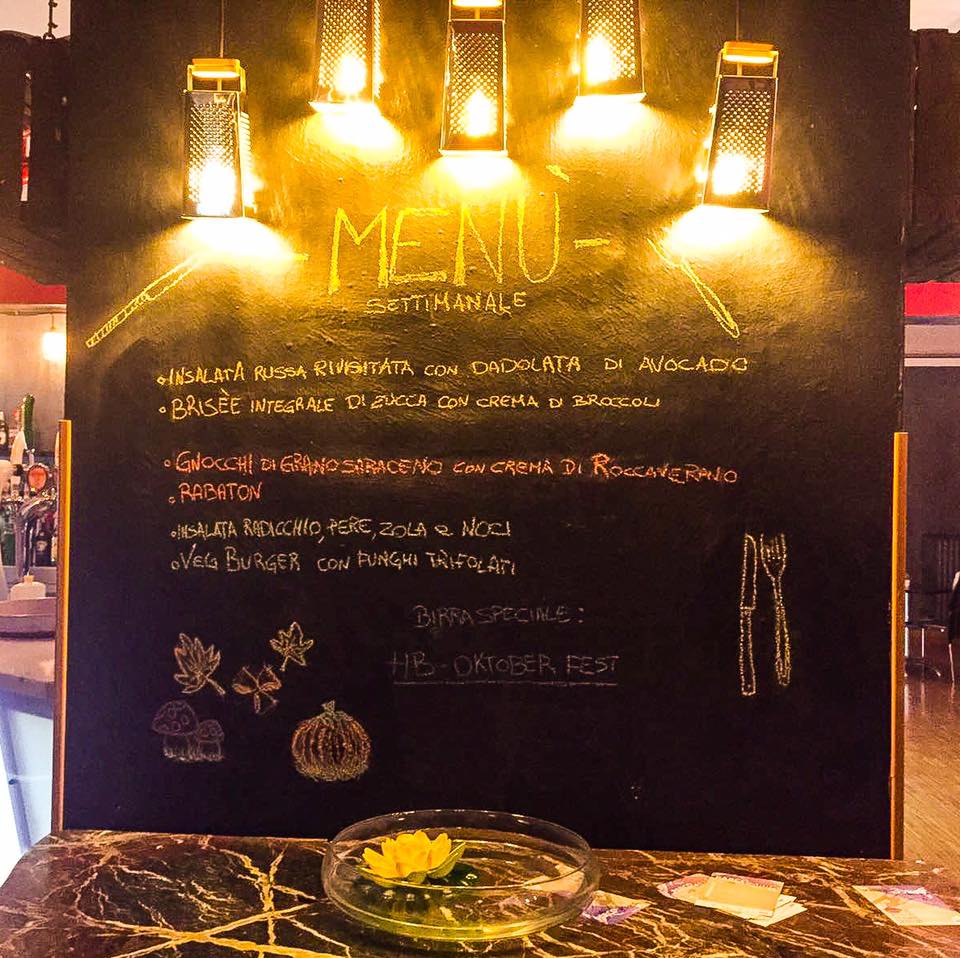 -MENÙ-
SETTIMANALE
•INSALATA RUSSA RIVISITATA CON DADOLATA DI AVOCADO
•BRISÈE INTEGRALE DI ZUCCA CON CREMA DI BROCCOLI
•GNOCCHI DI GRANO SARACENO CON CREMA DI ROCCAVERANO
•RABATON
•INSALATA RADICCHIO, PERE, ZOLA e NOCI
•VEG BURGER CON FUNGHI TRIFOLATI
BIRRA SPECIALE:
HB-OKTOBER FEST